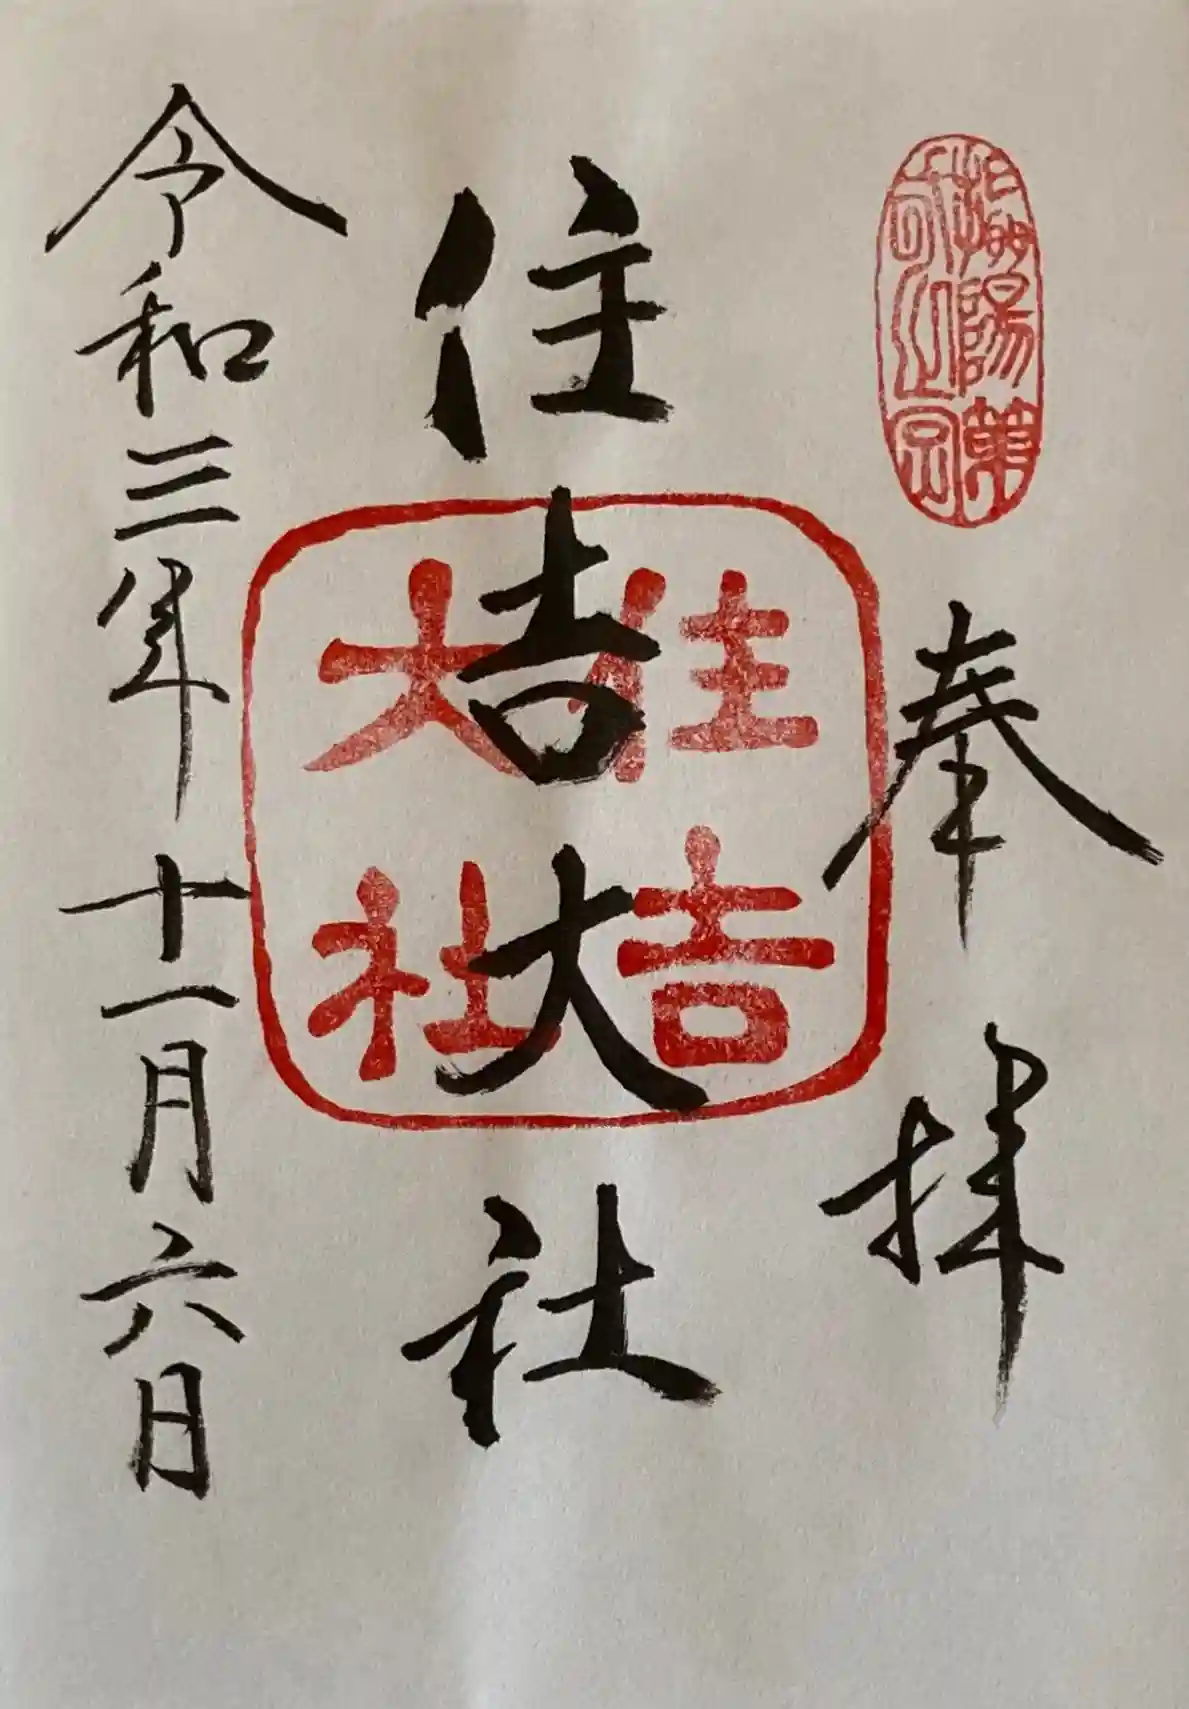 奉拝
住吉大社
住吉
大社
令和三年十一月六日